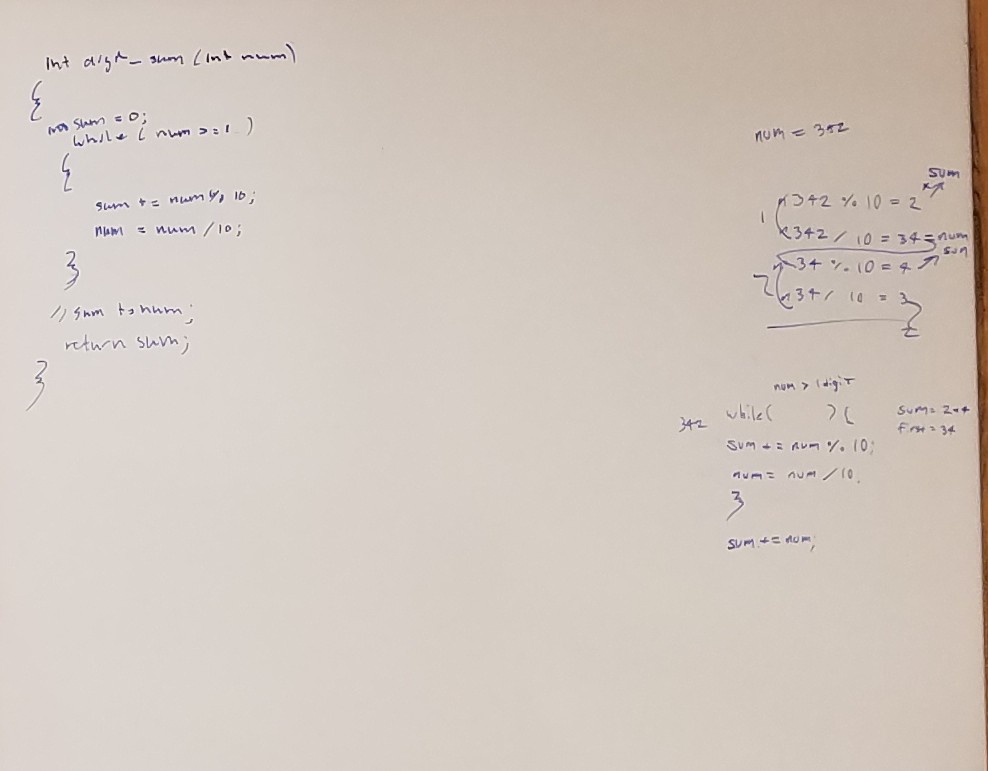 int digit_sum (int num)
{
int sum = 0;
while ( num >= 1 )
{
sum += num % 10;
num = num / 10;
}
// sum += num;
return sum;
}
num = 342
sum
1 342 % 10 = 2
342 / 10 = 34 = num
sum
2 34 % 10 = 4
34 / 10 = 3
num > 1 digit
342 while( ) {
sum = 2+4
first = 34
sum += num % 10;
num = num / 10.
}
sum += num;